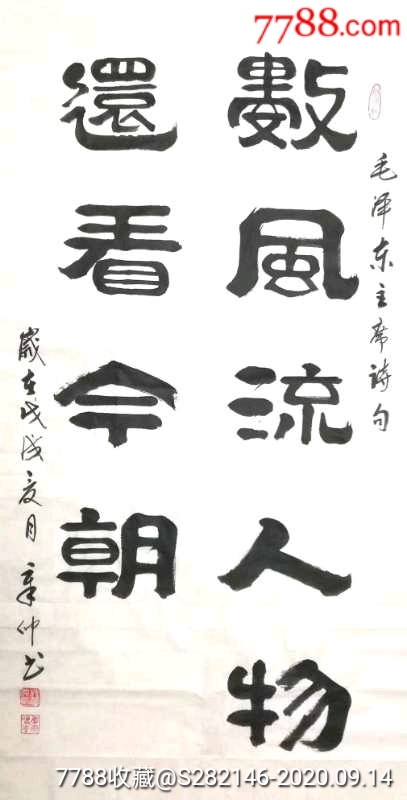 7788.com
毛泽东主席诗句
數風流人物
還看今朝
歲在戊戌夏月章仲书
7788收藏@S282146-2020.09.14